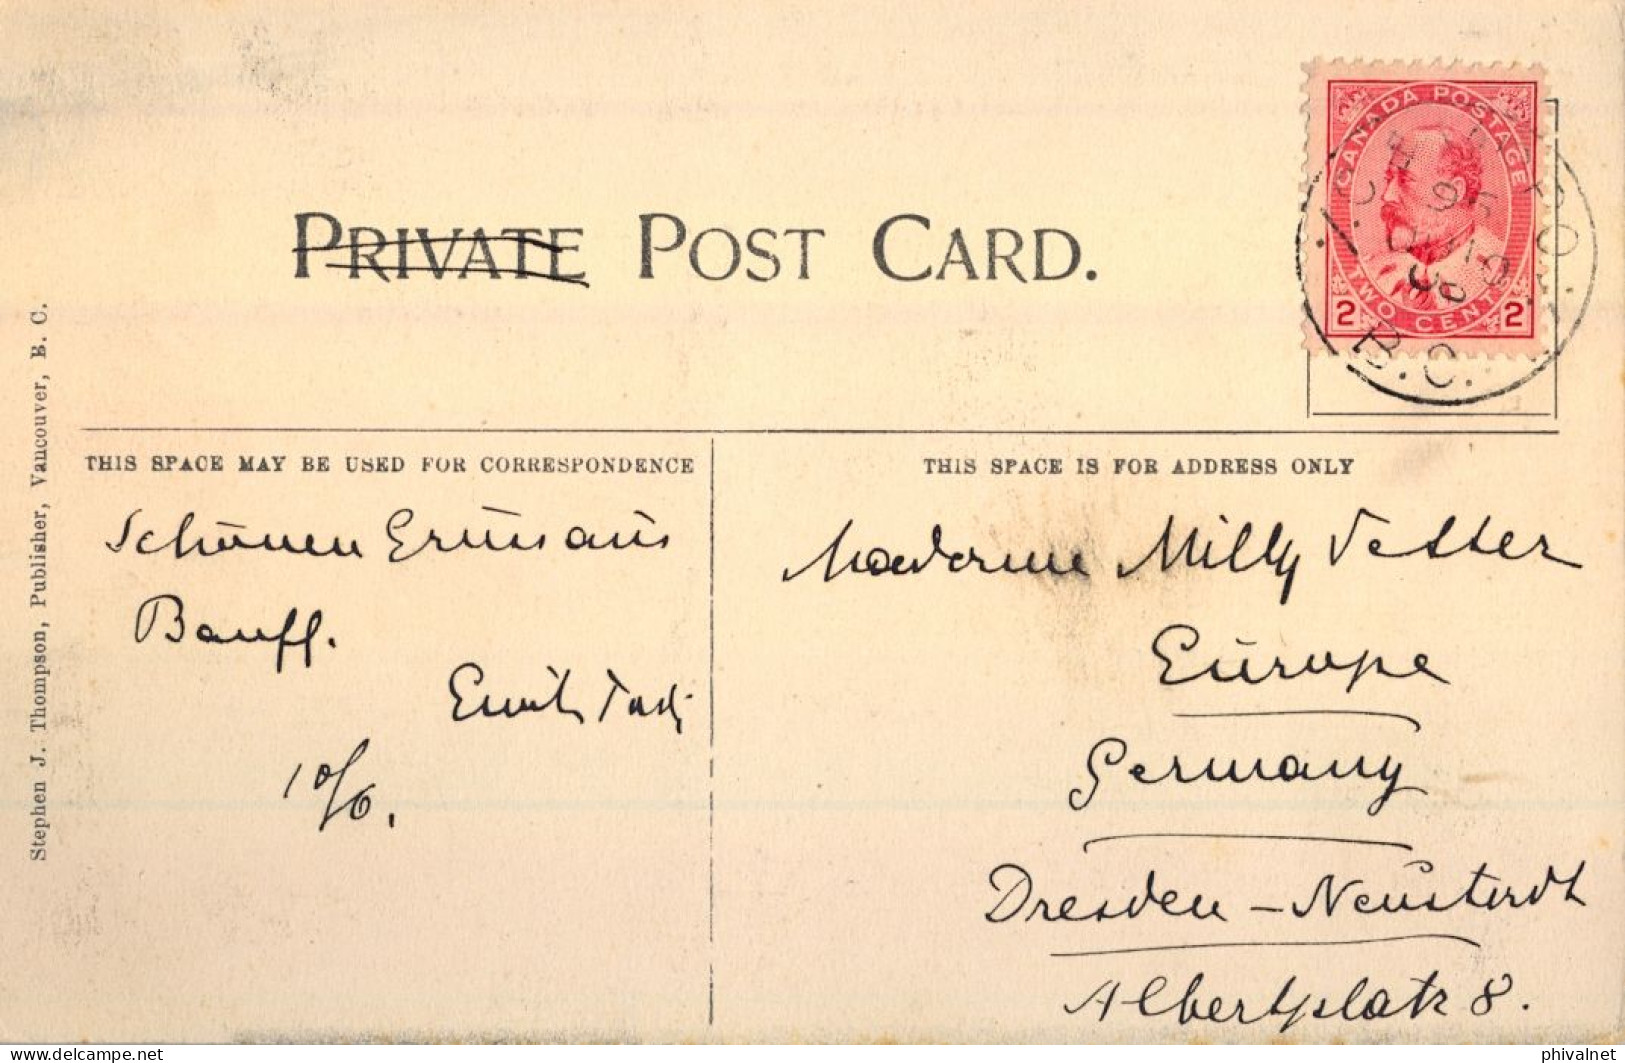 PRIVATE POST CARD.
CANADA POSTAGE
TWO CENTS
2 2
B.C.
Stephen J. Thompson, Publisher, Vancouver, B. C.
THIS SPACE MAY BE USED FOR CORRESPONDENCE
Schönen Gruss aus
Banff.
Emil
10/6.
THIS SPACE IS FOR ADDRESS ONLY
Madame Milly Vetter
Europe
Germany
Dresden - Neustadt
Albertplatz 8.
phivalnet
phivalnet